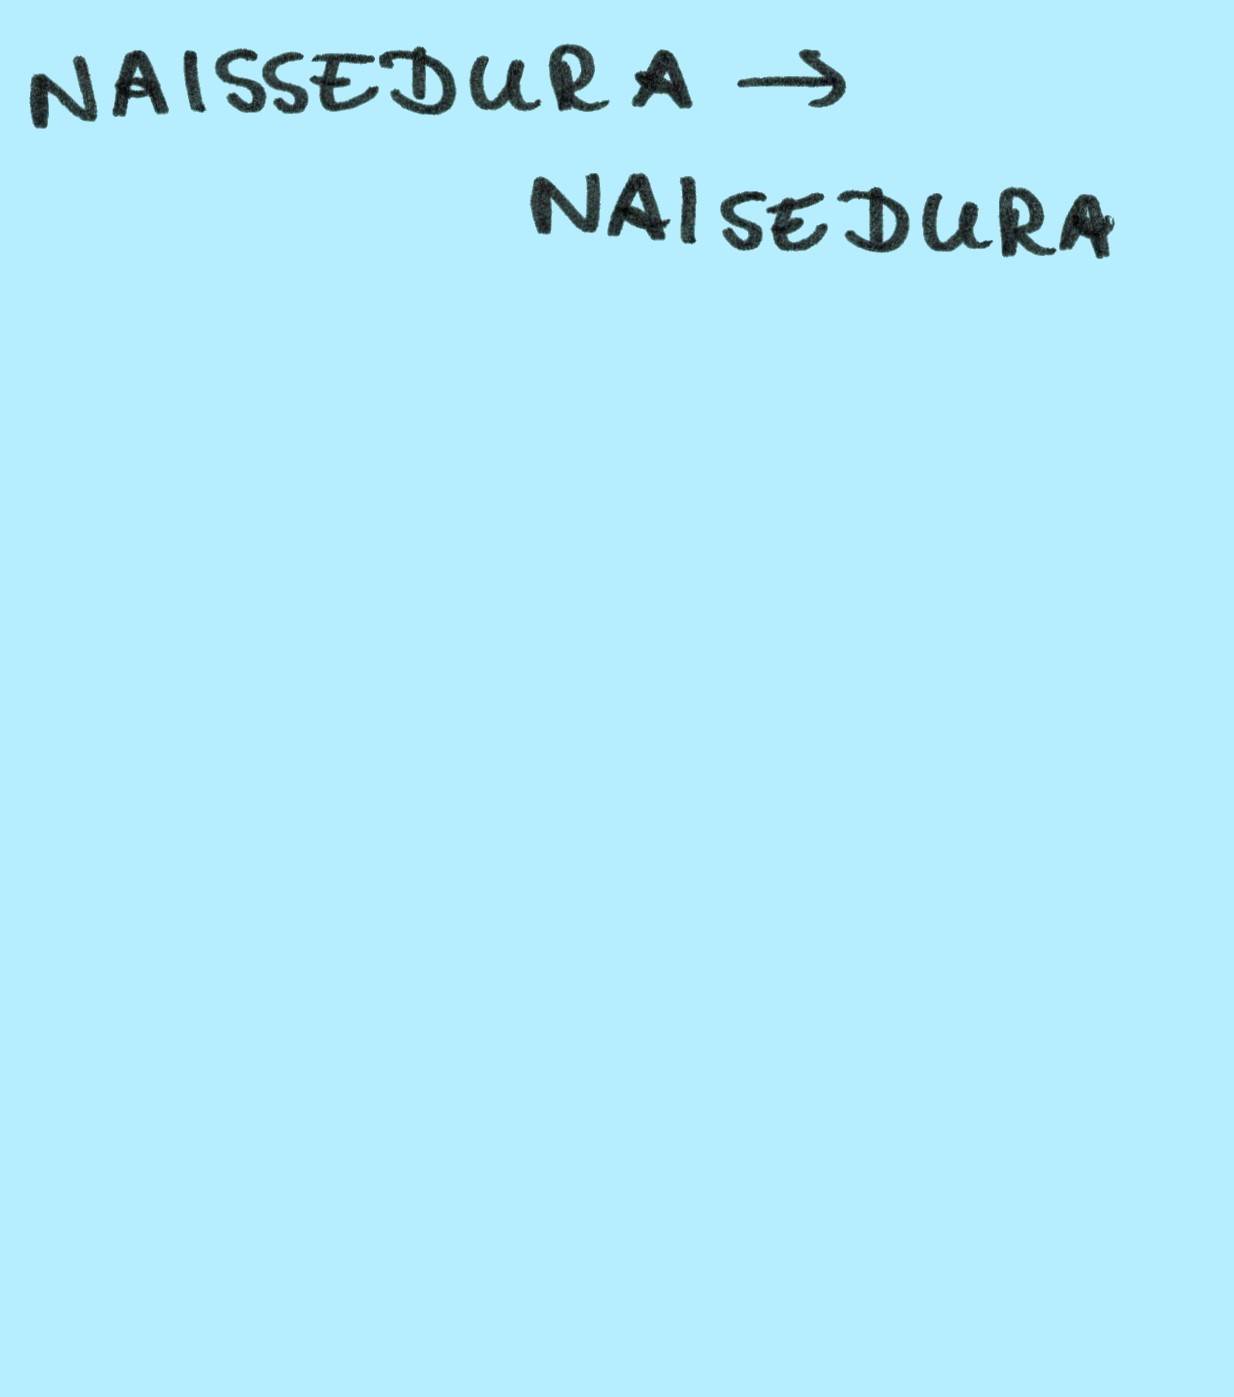 NAISSEDURA →
NAISEDURA